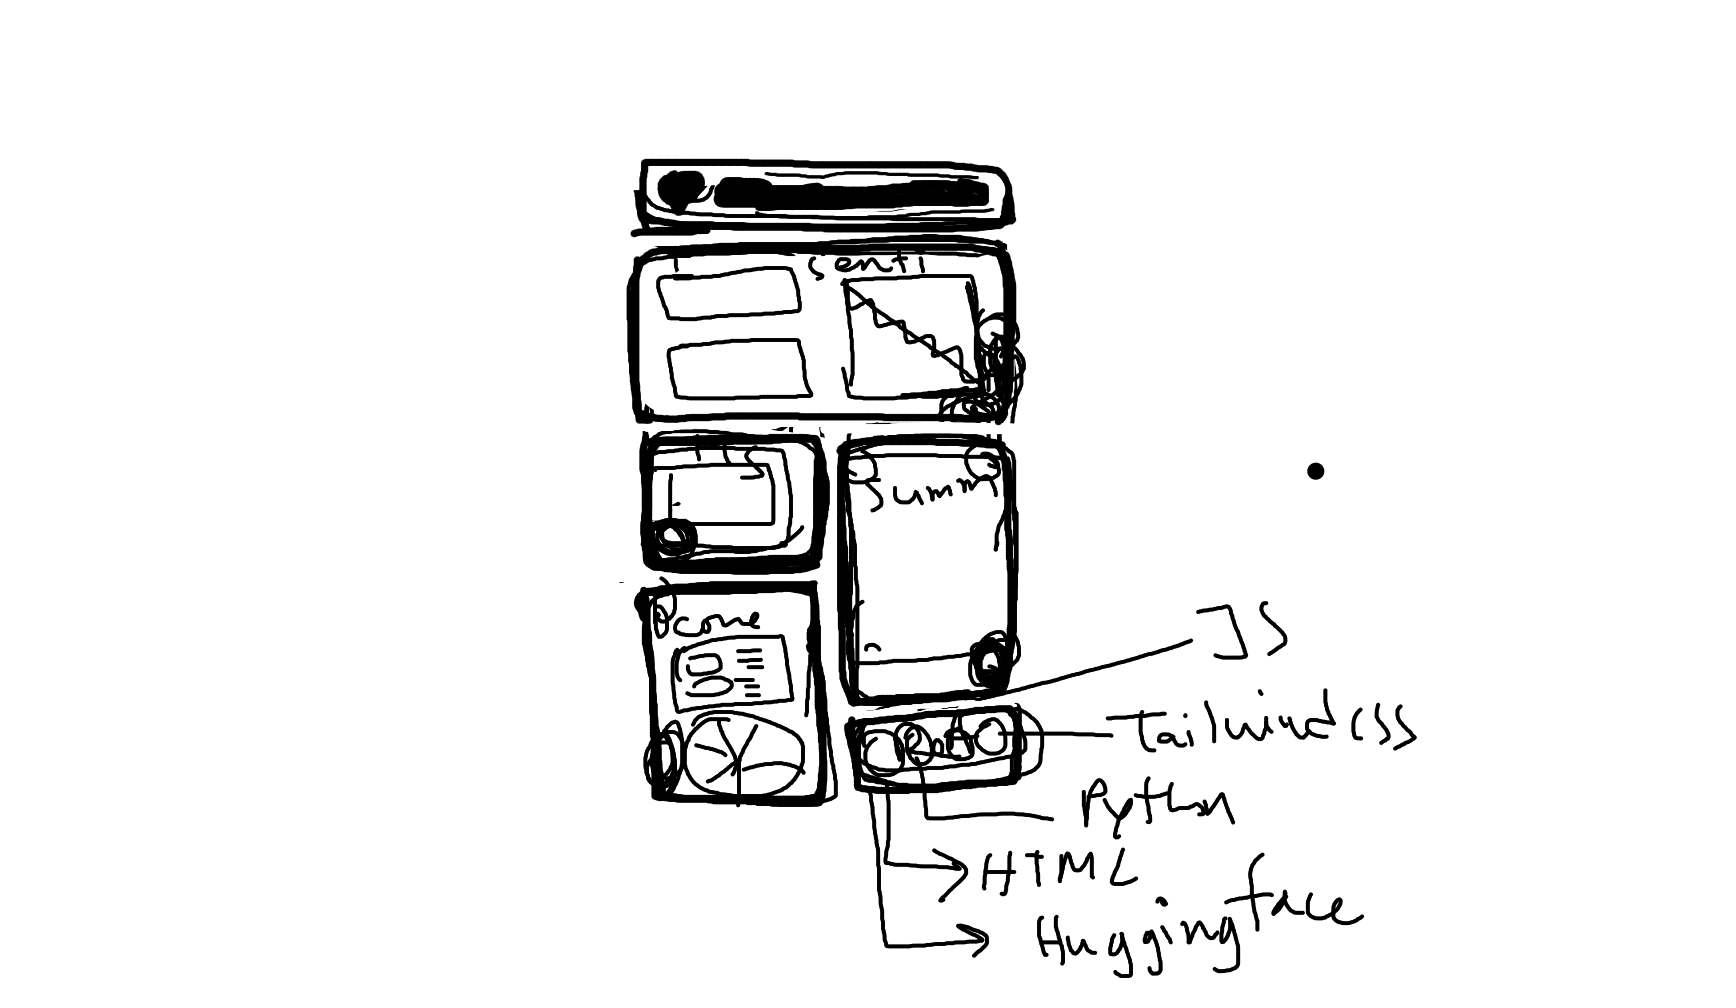 senti
summ
JS
Tailwind CSS
Python
HTML
Huggingface